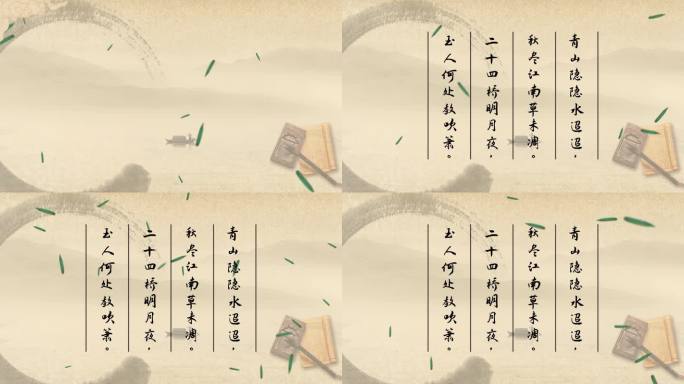 青山隐隐水迢迢，
秋尽江南草未凋。
二十四桥明月夜，
玉人何处教吹箫。
青山隐隐水迢迢，
秋尽江南草未凋。
二十四桥明月夜，
玉人何处教吹箫。
青山隐隐水迢迢，
秋尽江南草未凋。
二十四桥明月夜，
玉人何处教吹箫。